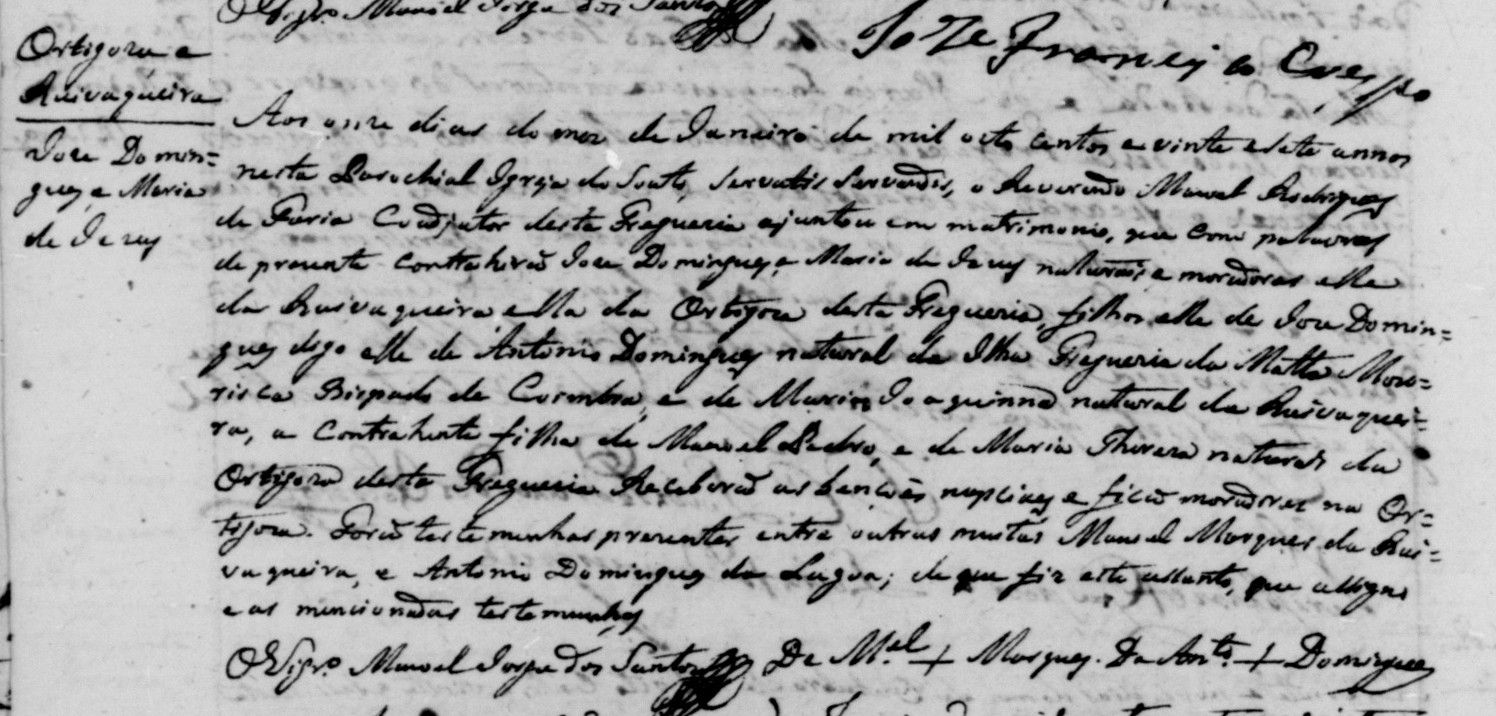 O Vigrº Manoel Jorge dos Santos
Joze Francisco Crespo
Ortigoza e
Ruivaqueira
Joze Domin=
gues, e Maria
de Jezus
Aos onze dias do mez de Janeiro de mil oito centos e vinte e sete annos
nesta Parochial Igreja do Souto, servatis servandis, o Reverendo Manoel Rodrigues
de Faria Coadjutor desta Freguezia ajuntou em matrimonio, que com palavras
de prezente contrahirão Joze Domingues, e Maria de Jezus naturais, e moradores elle
da Ruivaqueira ella da Ortigoza desta Freguezia, filhos elle de Joze Domin=
gues digo elle de Antonio Domingues natural da Ilha Freguezia da Matta Mou=
risca Bispado de Coimbra, e de Maria Joaquinna natural da Ruivaquei=
ra, a contrahente filha de Manoel Pedro, e de Maria Thereza naturais da
Ortigoza desta Freguezia. Receberão as bençoẽs nupciaes e ficão moradores na Or=
tigoza. Forão testemunhas prezentes entre outras muitas Manoel Marques da Rui=
vaqueira, e Antonio Domingues da Lagoa; de que fiz este assento, que assignei
e as mencionadas testemunhas
O Vigrº Manoel Jorge dos Santos De Mel + Marques. De Antº + Domingues